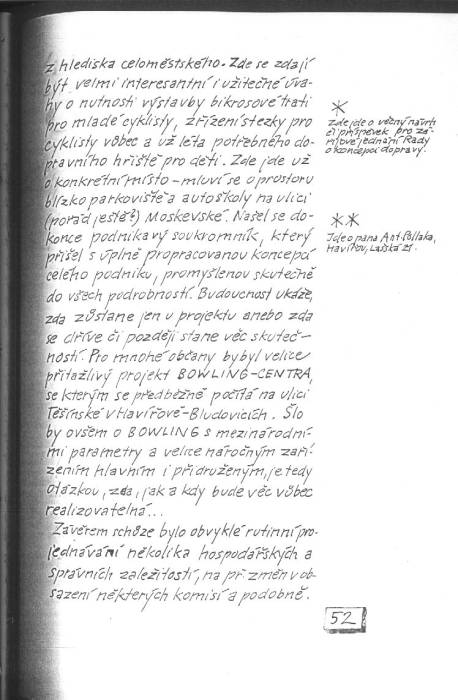 z hlediska celoměstského. Zde se zdají
být velmi interesantní i užitečné úva-
hy o nutnosti výstavby bikrosové trati
pro mladé cyklisty, zřízení stezky pro
cyklisty vůbec a už léta potřebného do-
pravního hřiště pro děti. Zde jde už
o konkrétní místo – mluví se o prostoru
blízko parkoviště a autoškoly na ulici
(pořád ještě?) Moskevské. Našel se do-
konce podnikavý soukromník, který
přišel s úplně propracovanou koncepcí
celého podniku, promyšlenou skutečně
do všech podrobností. Budoucnost ukáže,
zda zůstane jen u projektu anebo zda
se dříve či později stane věc skuteč-
ností. Pro mnohé občany by byl velice
přitažlivý projekt BOWLING-CENTRA,
se kterým se předběžně počítá na ulici
Těšínské v Havířově-Bludovicích. Šlo
by ovšem o BOWLING s mezinárodní-
mi parametry a velice náročným zaří-
zením hlavním i přidruženým, je tedy
otázkou, zda, jak a kdy bude věc vůbec
realizovatelná...
Závěrem schůze bylo obvyklé rutinní pro-
jednávání několika hospodářských a
správních záležitostí, na př. změn v ob-
sazení některých komisí a podobně.
*
Zde jde o věcný návrh
či příspěvek pro zá-
řijové jednání Rady
o koncepci dopravy.
**
Jde o pana Ant. Pollaka,
Havířov, Lašská 21.
52